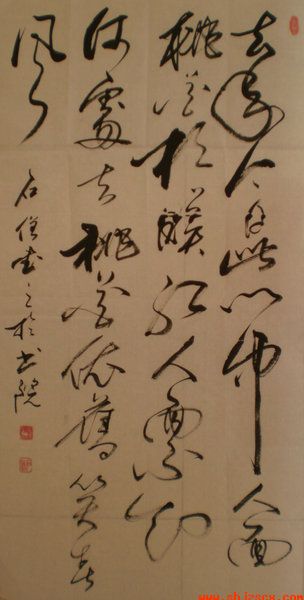 去年今日此門中人面
桃花相映紅人面不知
何處去桃花依舊笑春
風
石 書之於書院
www.shjzscx.com